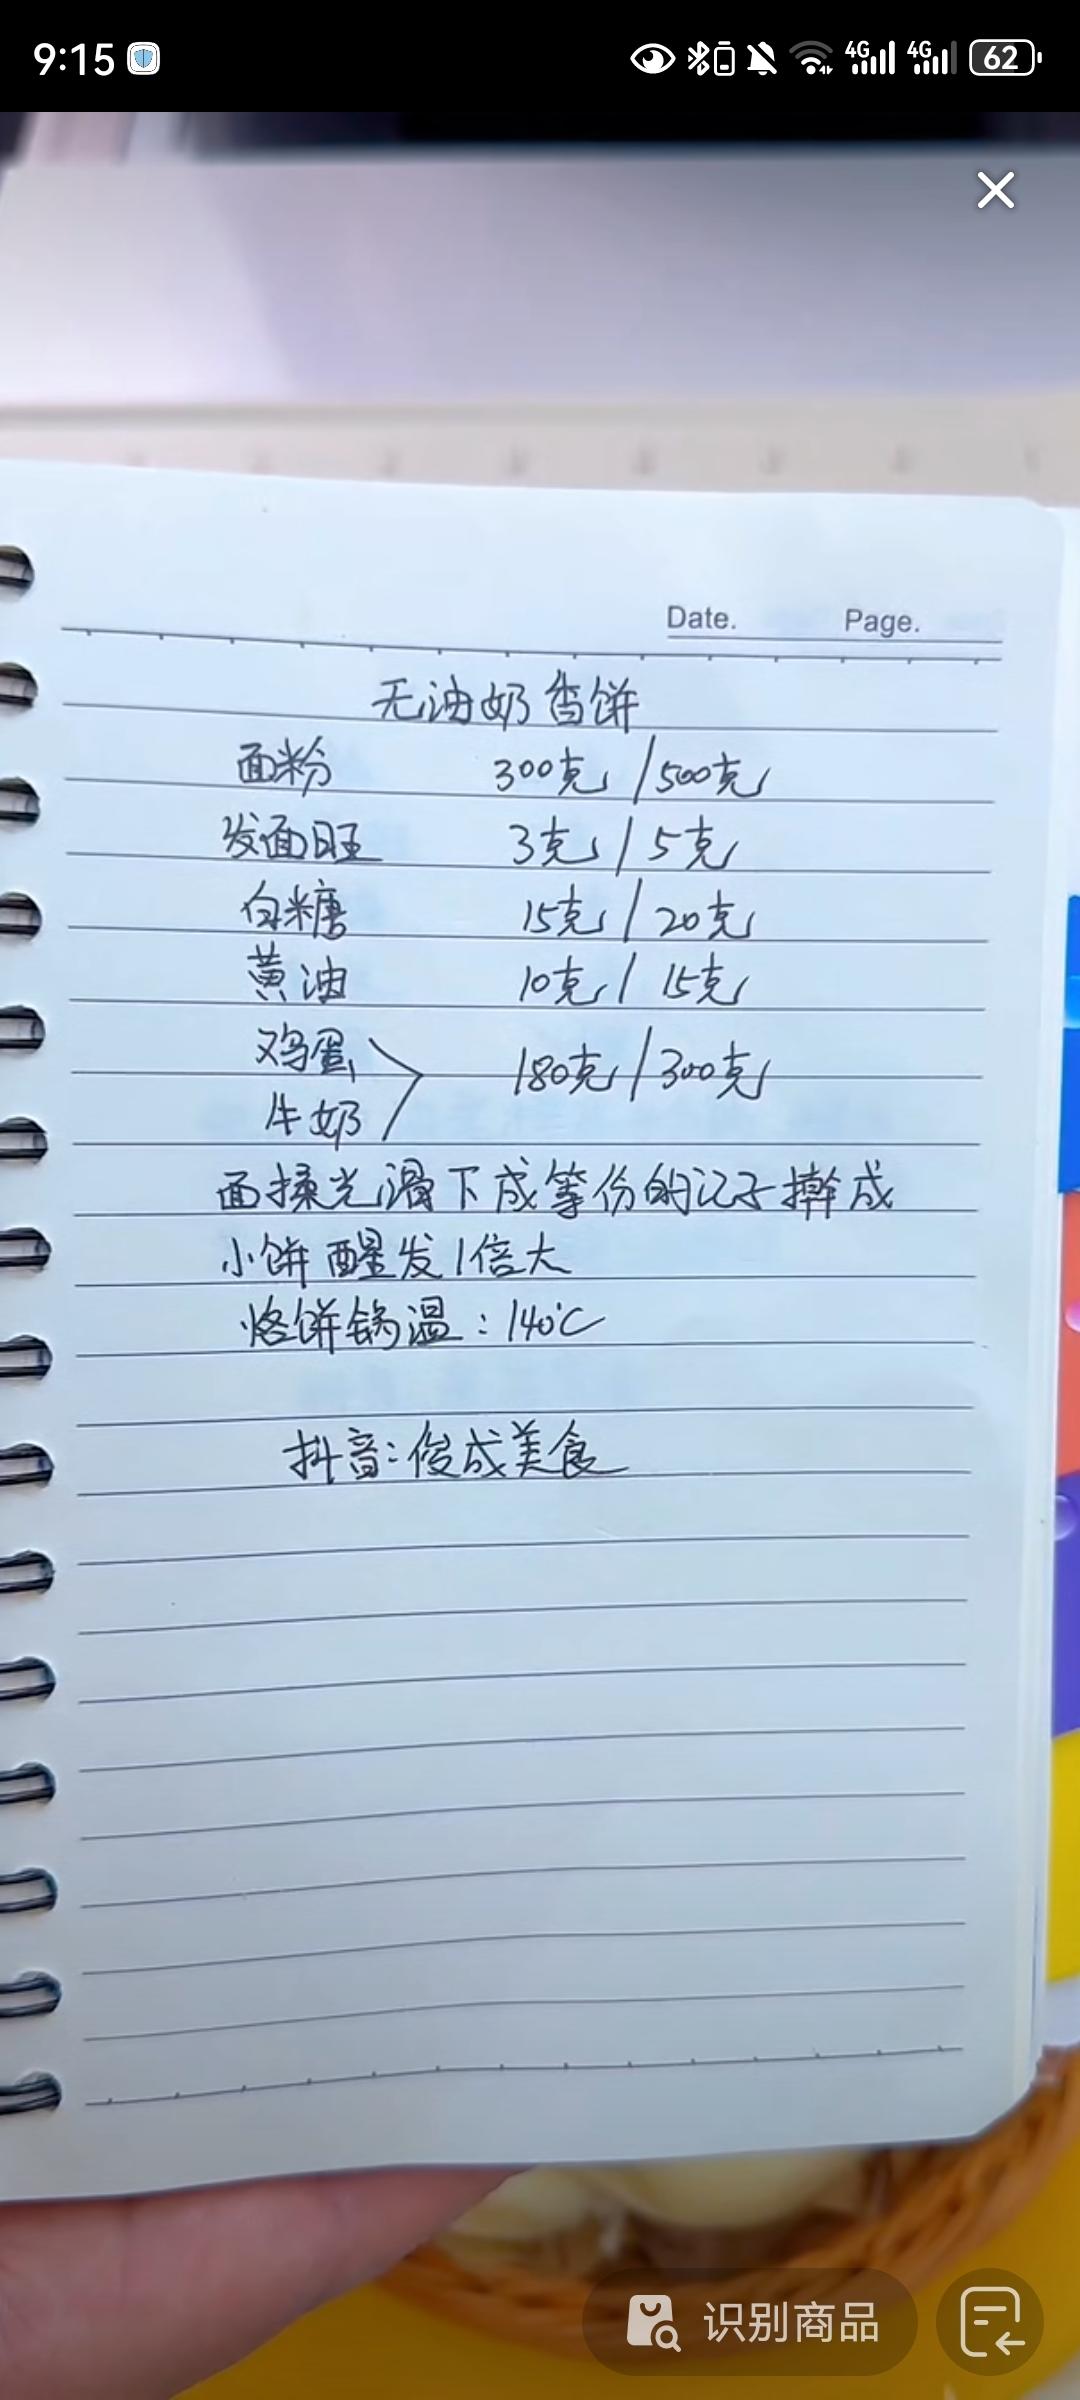 9:15
4G 4G 62
Date. Page.
无油奶香饼
面粉 300克/500克
发面旺 3克/5克
白糖 15克/20克
黄油 10克/15克
鸡蛋
牛奶 180克/300克
面揉光滑下成等份的记子擀成
小饼醒发1倍大
烙饼锅温:140℃
抖音:俊成美食
识别商品